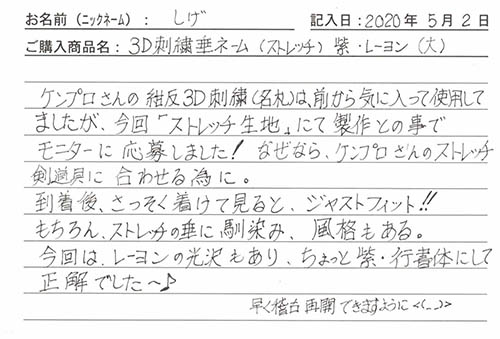 お名前(ニックネーム): しげ 記入日:2020年 5月 2日
ご購入商品名: 3D刺繍垂ネーム(ストレッチ)紫・レーヨン(大)
ケンプロさんの紺反3D刺繍(名札)は、前から気に入って使用して
ましたが、今回「ストレッチ生地」にて製作との事で
モニターに応募しました! なぜなら、ケンプロさんのストレッチ
剣道具に合わせる為に。
到着後、さっそく着けて見ると、ジャストフィット!!
もちろん、ストレッチの垂に馴染み、風格もある。
今回は、レーヨンの光沢もあり、ちょっと紫・行書体にして
正解でした〜♪
早く稽古再開できますように<(_ _)>